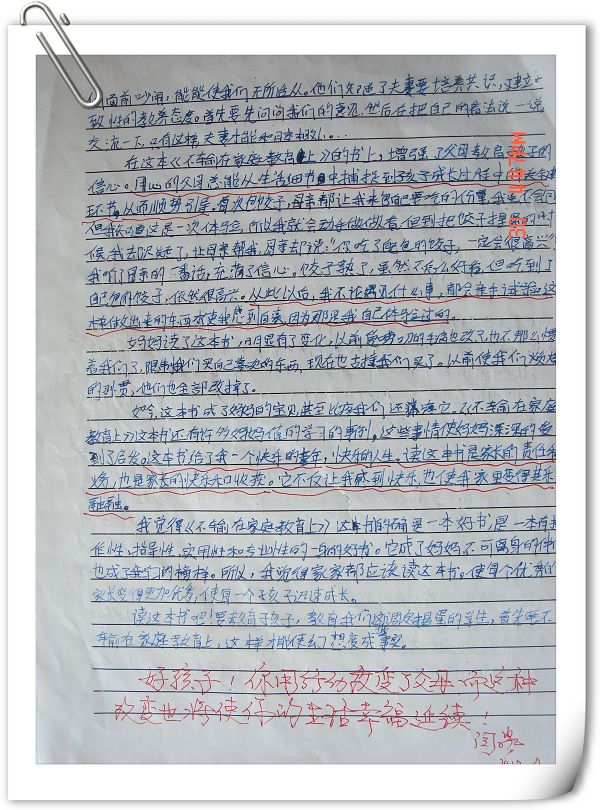 面前吵闹,能能使我们无所适从。他们知道了夫妻要培养共识,建立一
致性的教养态度。首先要先问问我们的意见,然后在把自己的看法说一说
交流一下,只有这样夫妻才能和睦相处...
在这本《不输在家庭教育上》的书上,增强了父母教育孩子的
信心。用心的父母总能从生活细节中捕捉到孩子成长过程中的
环节,从而顺势引导。每次包饺子,母亲都让我来包自己要吃的份量,我是不会
但我知道这是一次体验,所以我就会动手做做看,但到把饺子捏
候,我却迟疑了,让母亲帮我,母亲却说:“你吃了自己包的饺子,一定会很高兴”
我听了母亲的一番话,充满了信心。饺子熟了,虽然不怎么好看,但吃到了
自己包的饺子,依然很高兴。从此以后,我不论遇见什么事,都会亲手试试。这
样做出来的东西才更我感到自豪,因为那是我自己体验过的。
妈妈读了这本书,明显有了变化,以前
着我们了,限制我们买自己喜欢的东西,现在也支持我们买了。以前使我们
的习惯,他们也全部改掉了。
如今,这本书成了妈妈的宝贝,甚至比
教育上》这本书还有许多妈妈值的学习的事例。这些事情使妈妈深深的受
到了启发。这本书给了我一个快乐的童年,快乐的人生。读这本书是家长的责任和
义务,也是家长的快乐和收获。它不仅让我感到快乐,也使我家里变得其乐
融融。
我觉得《不输在家庭教育上》这书的确是一本好书,是一本有
性、指导性、实用性和专业性的一身的好书。它成了妈妈不可离身的
也成了我学习的榜样。所以,我觉得家家都应该读这本书。使每个优秀的
家长变得更加优秀,使每一个孩子迅速成长。
读这本书吧!要教育子孩子,教育我们这调皮捣蛋的学生,首先要不
输在家庭教育上,这样才能使幻想变成事实。
好孩子!你用行动改变了父母,而这种
改变也将使你的生活幸福延续!